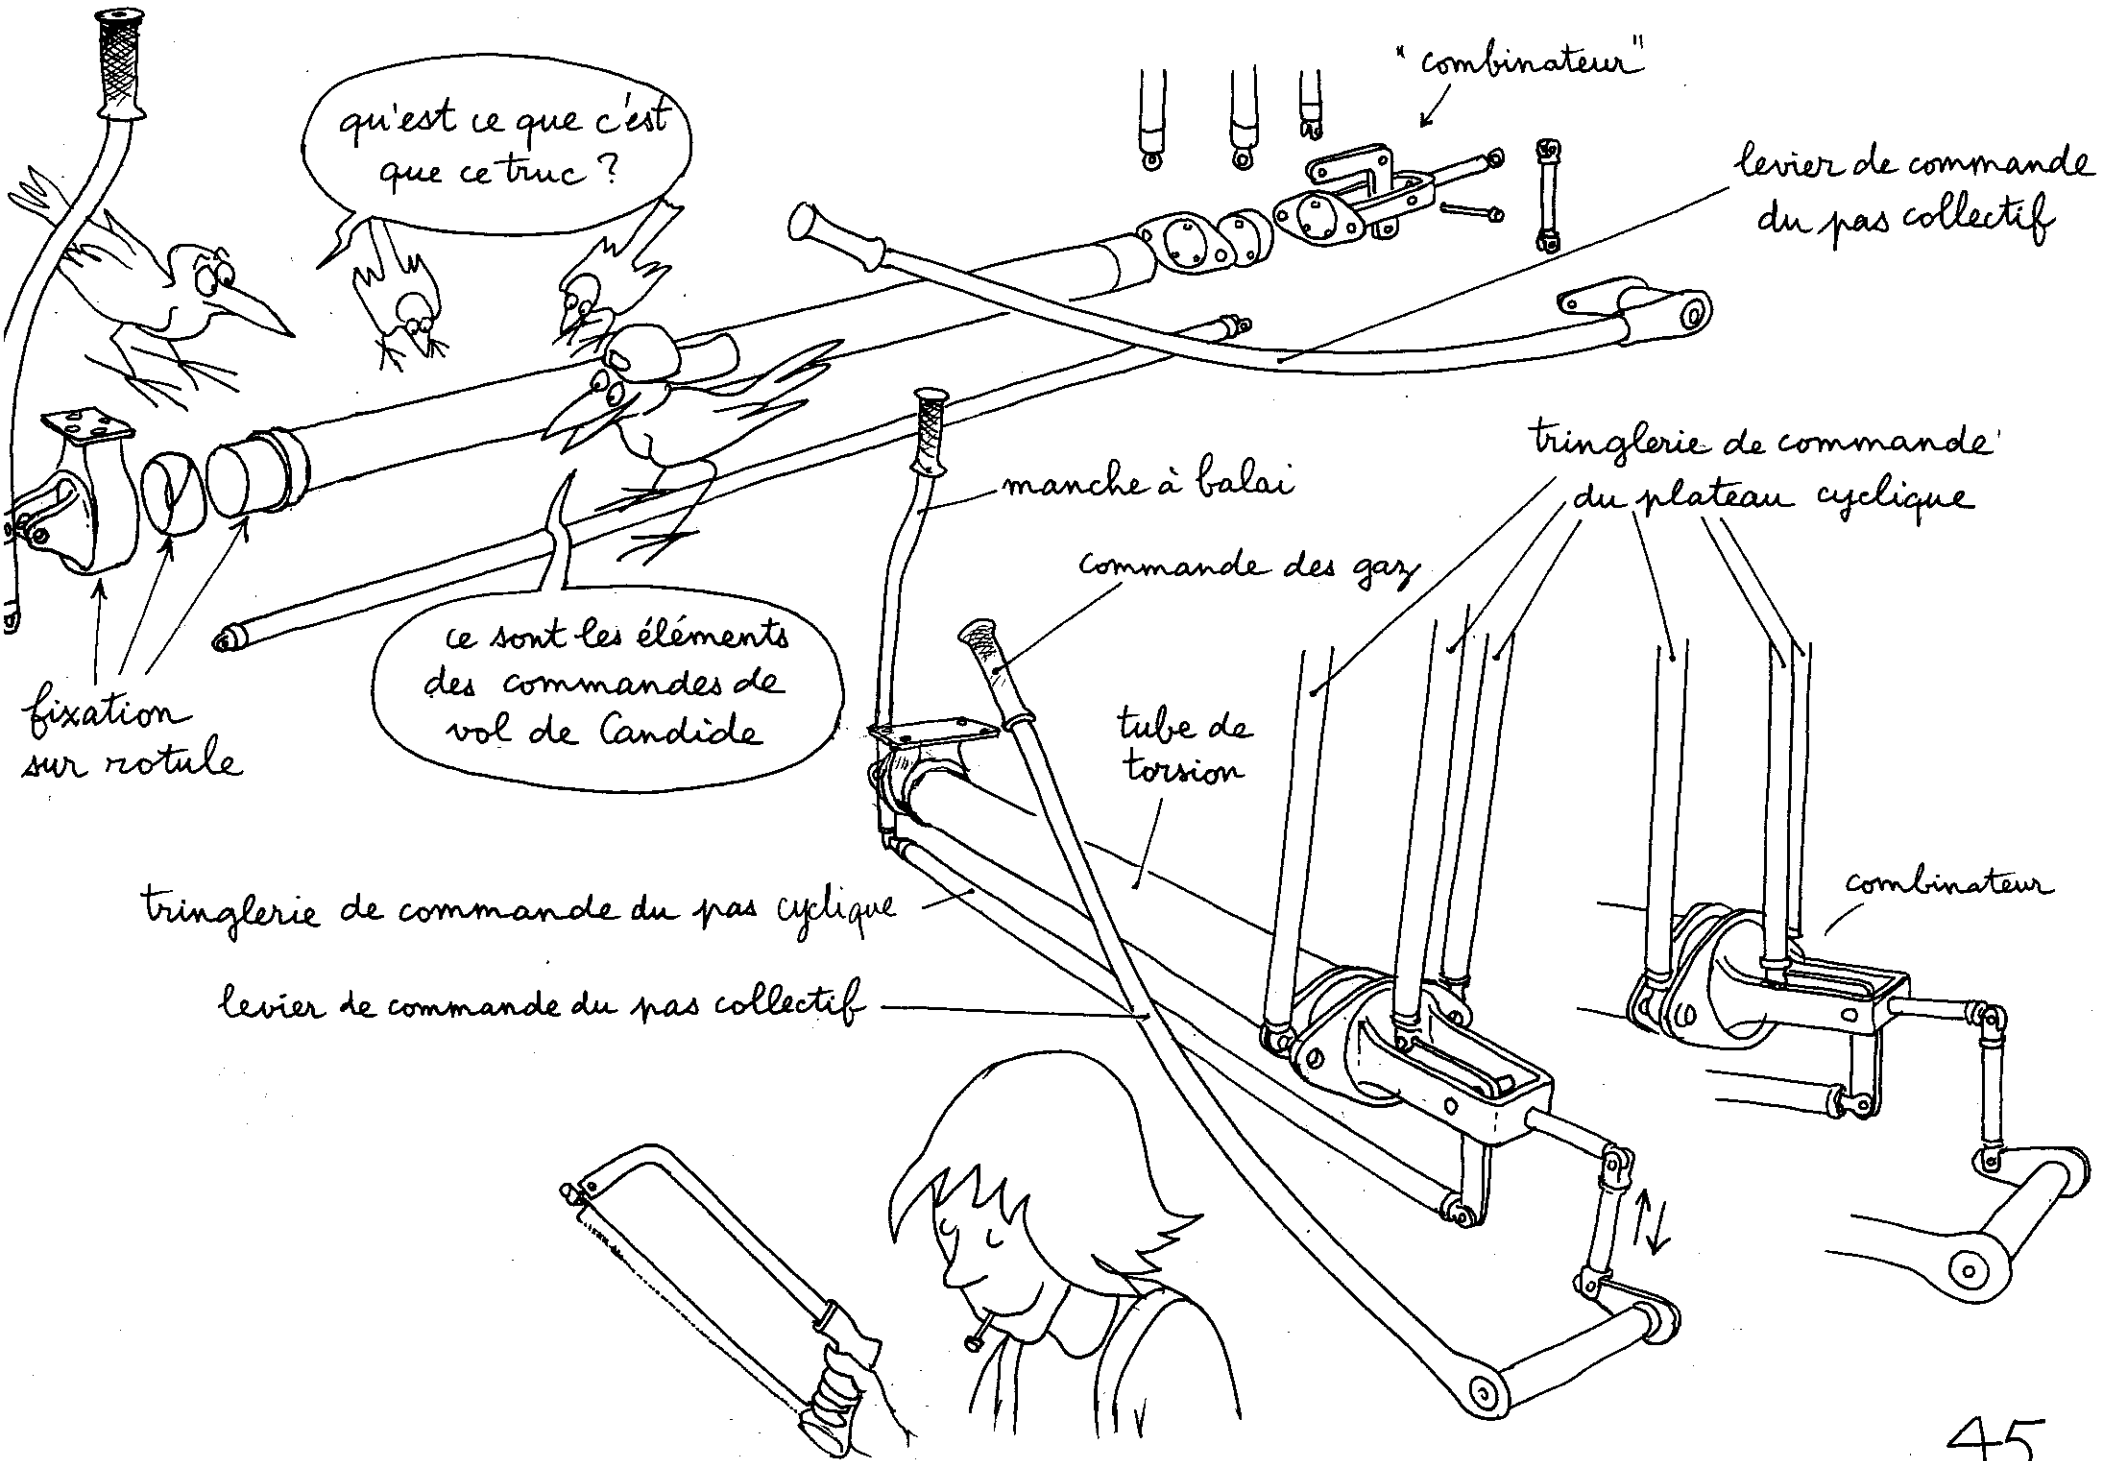 qu'est ce que c'est
que ce truc ?
"combinateur"
levier de commande
du pas collectif
tringlerie de commande
du plateau cyclique
manche à balai
commande des gaz
ce sont les éléments
des commandes de
vol de Candide
fixation
sur rotule
tube de
torsion
tringlerie de commande du pas cyclique
combinateur
levier de commande du pas collectif
45